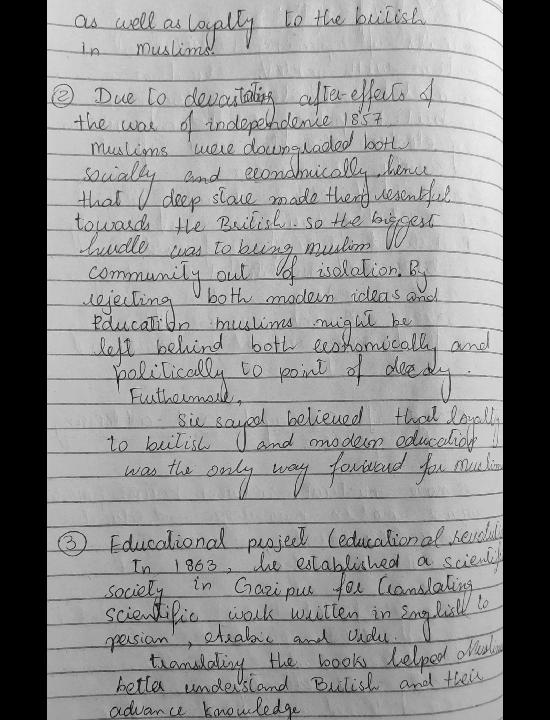 as well as loyalty to the british
in muslims.
② Due to devastating after-effects of
the war of independence 1857
muslims were downgraded both
socially and economically, hence
that deep stave made them resentful
towards the British. so the biggest
hurdle was to being muslim
community out of isolation. By
rejecting both modern ideas and
Education muslims might be
left behind both economically and
politically to point of decay.
Furthermore,
Sir sayed believed that loyalty
to british and modern education
was the only way forward for muslim
③ Educational project (educational
In 1863, he established a scientif
society in Gazipur for translating
scientific work written in English to
persian, Arabic and Urdu.
translating the books helped Muslim
better understand British and their
advance knowledge